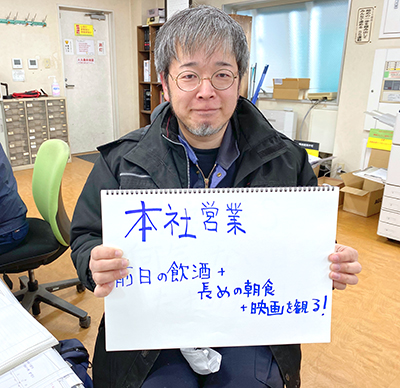 本社営業
前日の飲酒+
長めの朝食
+映画を観る!